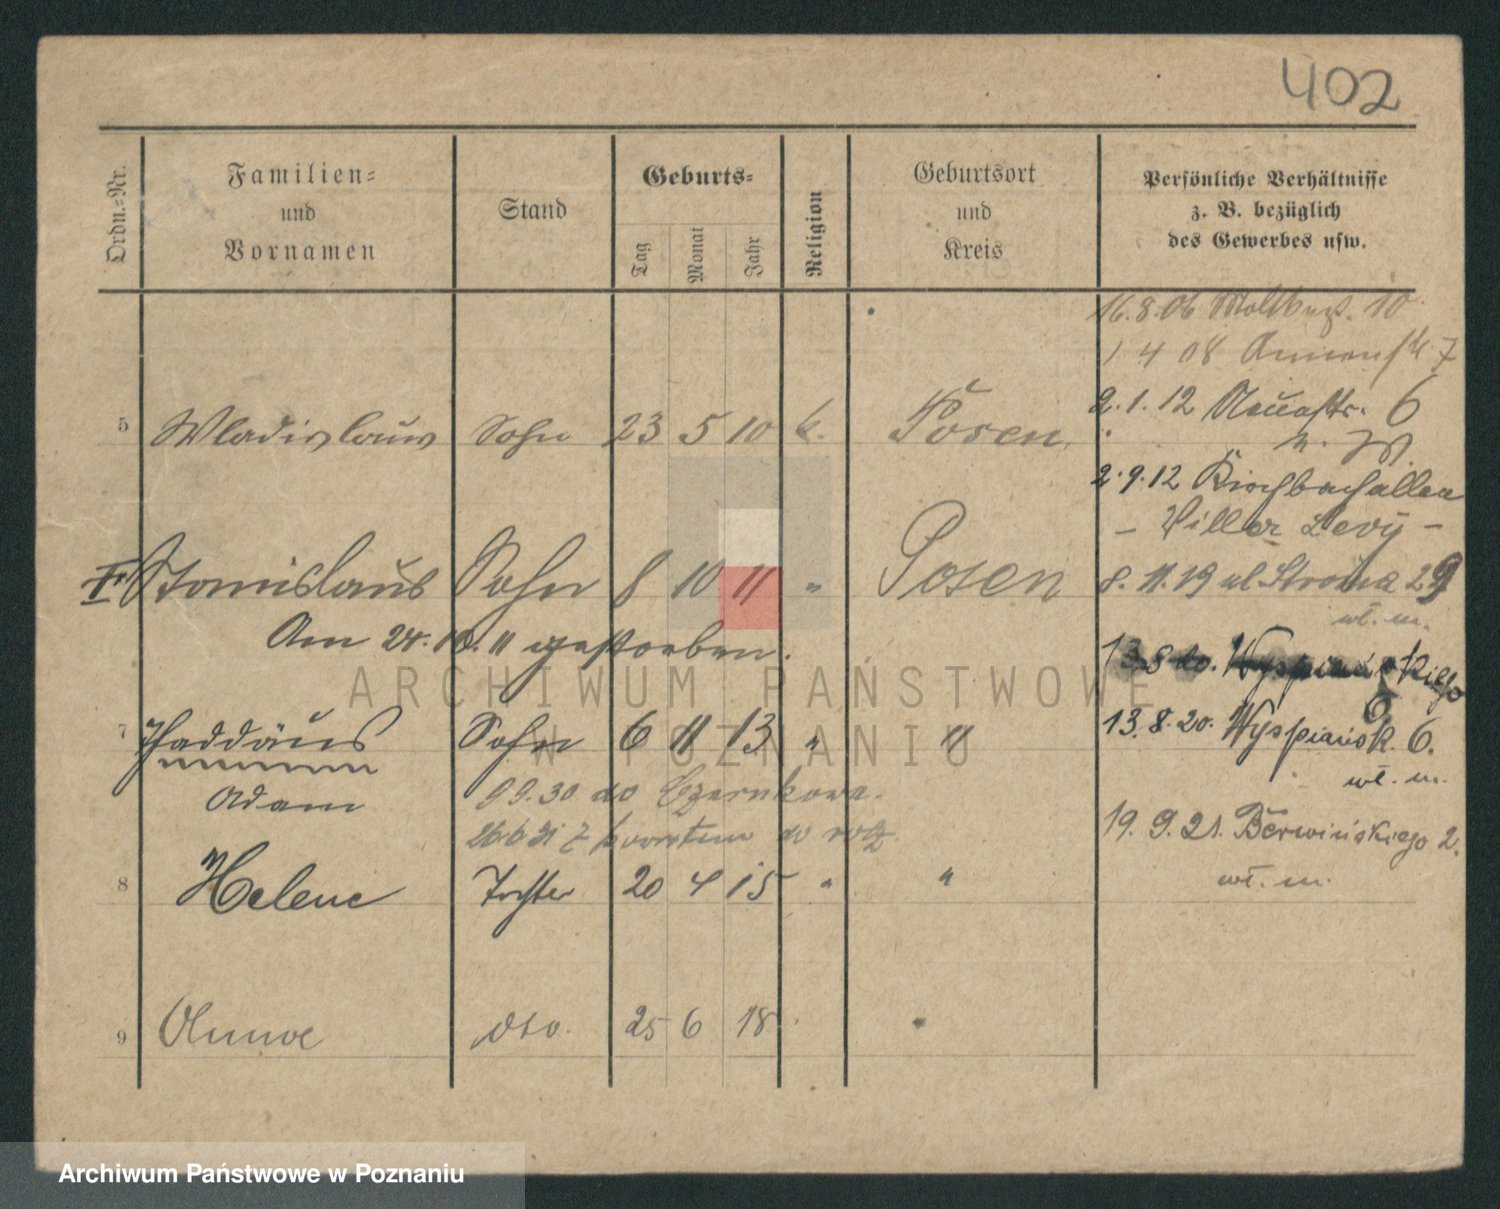 402
Ordn.-Nr.
Familien-
und
Vornamen
Stand
Geburts-
Tag
Monat
Jahr
Religion
Geburtsort
und
Kreis
Persönliche Verhältnisse
z. B. bezüglich
des Gewerbes usw.
16.8.06 10
1 4 08 7
5 Wladislaus Sohn 23 5 10 k. Posen
2.1.12 Neuestr. 6
2.9.12
- Levy -
Stanislaus Sohn 8 10 11 " Posen
8.11.19 ul Stroma 29
wł. m.
Am 24. 10. 11 gestorben.
13 8 20. Wyspiańskiego
6
7 Thaddäus Sohn 6 11 13 " "
13.8.20. Wyspiańsk. 6.
wł. m.
Adam
9 9.30 do Czarnkowa.
do
19. 9. 21. Berwińskiego 2.
wł. m.
8 Helene Tochter 20 4 15 " "
9 dto. 25 6 18
ARCHIWUM PAŃSTWOWE
W POZNANIU
Archiwum Państwowe w Poznaniu